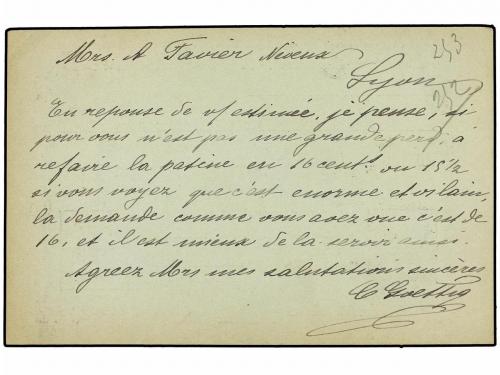 Mrs. A Favier Neveux
253
Lyon
252
En reponse de v/ estimée, je pense, si
pour vous n'est pas une grande perd, á
refaire la patine en 16 cent.s ou 15½
si vous voyez que c'est enorme et vilain,
la demande comme vous avez vue c'est de
16, et il est mieux de la servir ainsi.
Agreez Mrs mes salutations sincères
C Goettig